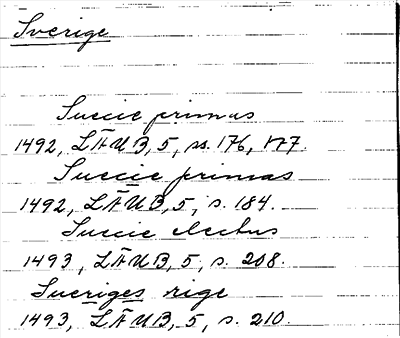 Sverige
Suecie primus
1492, LÄUB, 5, ss. 176, 177.
Suecie primas
1492, LÄUB, 5, s. 184.
Suecie electus
1493, LÄUB, 5, s. 208.
Sueriges rige
1493, LÄUB, 5, s. 210.